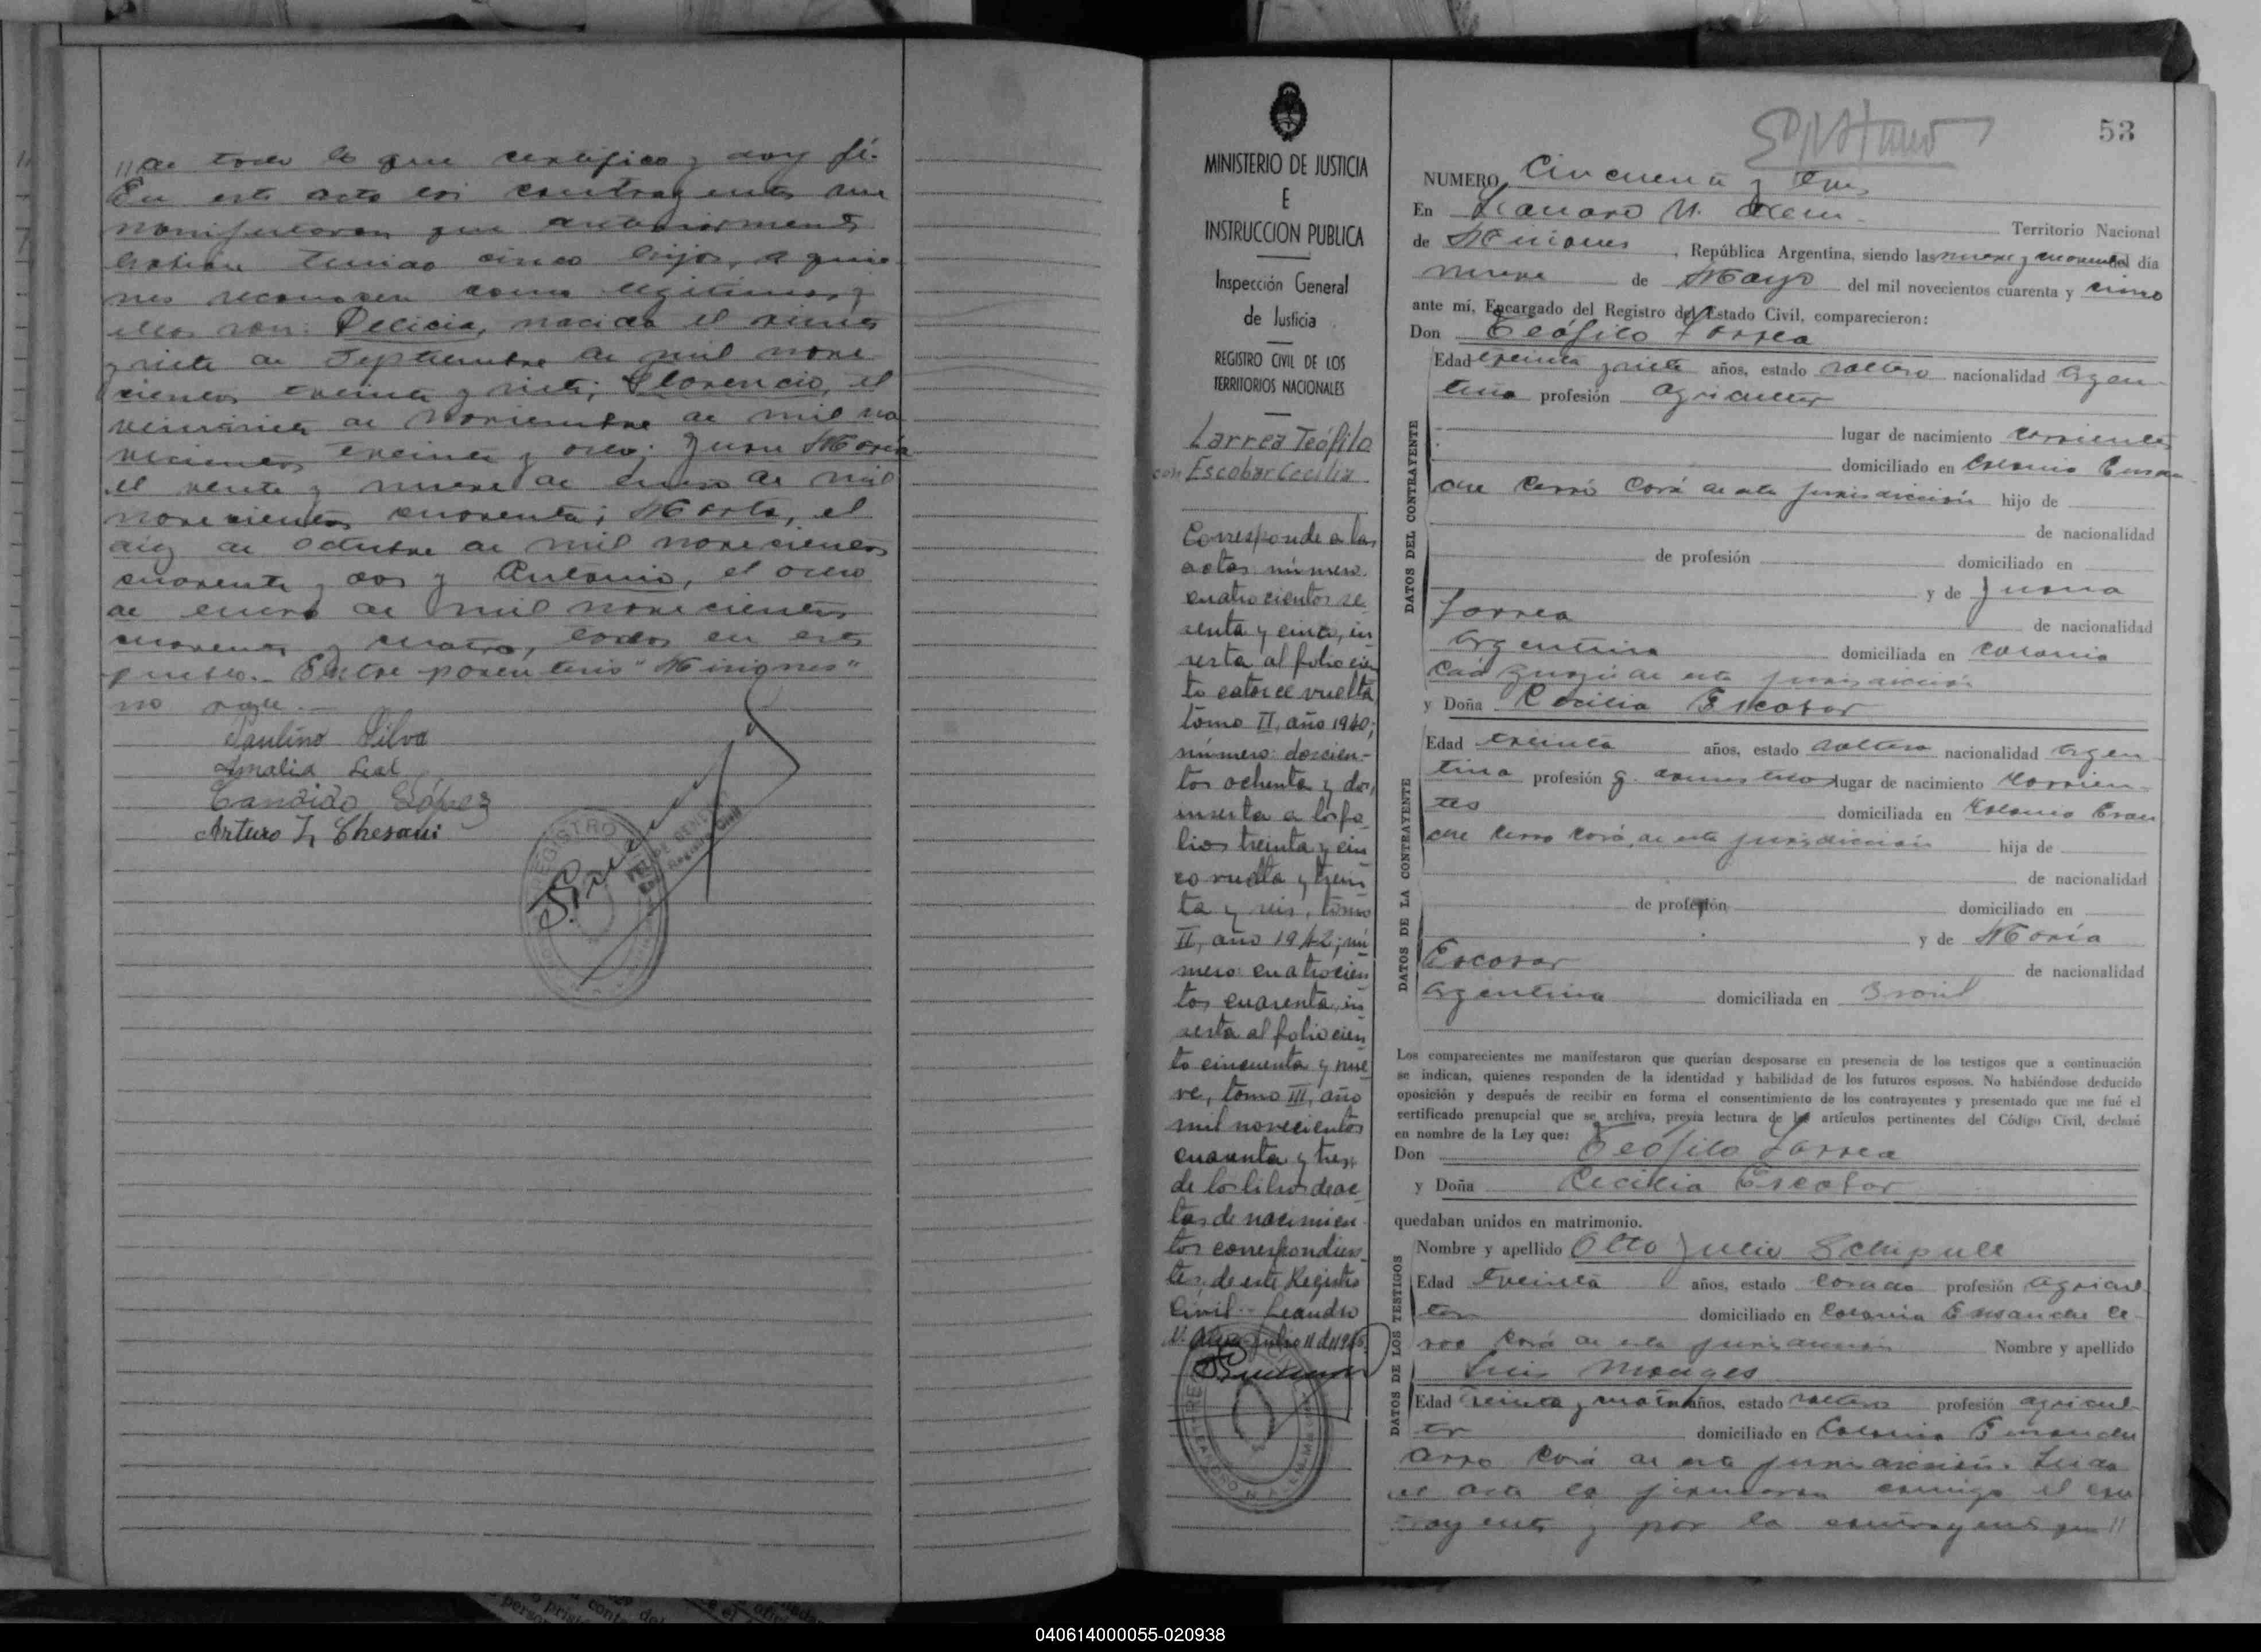 // de todo lo que certifico y doy fé.
En este acto los contrayentes me
manifestaron que anteriormente
habían tenido cinco hijos, a quie
nes reconocen como legítimos y
ellos son: Delicia, nacida el veinte
y siete de Septiembre de mil nove
cientos treinta y siete; Florencio, el
de Noviembre de mil no
vecientos treinta y ocho; Juan María
el veinte y nueve de enero de mil
novecientos cuarenta; Marta, el
diez de octubre de mil novecientos
cuarenta y dos y Antonio, el ocho
de enero de mil novecientos
cuarenta y cuatro, todos en este
pueblo.- Entre parentesis "Misiones"
no vale.-
Paulino Silva
Amalia Leal
Candido López
Arturo L. Chesani
REGISTRO
MINISTERIO DE JUSTICIA
E
INSTRUCCION PUBLICA
Inspección General
de Justicia
REGISTRO CIVIL DE LOS
TERRITORIOS NACIONALES
Larrea Teófilo
con Escobar Cecilia
Corresponde a las
actas número
cuatrocientos se
senta y cinco, in
serta al folio cien
to catorce vuelta,
tomo II, año 1940;
número: doscien-
tos ochenta y dos,
inserta a los fo
lios treinta y cin
co vuelta y trein
ta y seis, tomo
II, año 1942; nú
mero: cuatrocien
tos cuarenta, in
serta al folio cien
to cincuenta y nue
ve, tomo III, año
mil novecientos
cuarenta y tres
de los libros de ac
tas de nacimien
tos correspondien
tes de este Registro
Civil.- Leandro
N. Alem, julio 11 de
53
NUMERO Cincuenta y tres
En Leandro N. Alem Territorio Nacional
de Misiones, República Argentina, siendo las nueve y cuarenta del día
nueve de Mayo del mil novecientos cuarenta y cinco
ante mí, Encargado del Registro del Estado Civil, comparecieron:
Don Teófilo Larrea
Edad treinta y siete años, estado soltero nacionalidad Argen-
tina profesión agricultor
lugar de nacimiento Corrientes
domiciliado en Colonia Ensan
che Cerro Corá de esta jurisdicción hijo de
de nacionalidad
de profesión domiciliado en
y de Juana
Larrea de nacionalidad
Argentina domiciliada en Colonia
Caá Guazú de esta jurisdicción
DATOS DEL CONTRAYENTE
y Doña Cecilia Escobar
Edad treinta años, estado soltera nacionalidad Argen
tina profesión q. domésticos lugar de nacimiento Corrien-
tes domiciliada en Colonia Ensan
che Cerro Corá, de esta jurisdicción hija de
de nacionalidad
de profesión domiciliado en
y de María
Escobar de nacionalidad
Argentina domiciliada en Brasil
DATOS DE LA CONTRAYENTE
Los comparecientes me manifestaron que querían desposarse en presencia de los testigos que a continuación
se indican, quienes responden de la identidad y habilidad de los futuros esposos. No habiéndose deducido
oposición y después de recibir en forma el consentimiento de los contrayentes y presentado que me fué el
certificado prenupcial que se archiva, previa lectura de los artículos pertinentes del Código Civil, declaré
en nombre de la Ley que:
Don Teófilo Larrea
y Doña Cecilia Escobar
quedaban unidos en matrimonio.
Nombre y apellido Otto Julio Schipull
Edad treinta años, estado casado profesión agricul
tor domiciliado en Colonia Ensanche Ce-
rro Corá de esta jurisdicción Nombre y apellido
Luis Monges
Edad treinta y cuatro años, estado soltero profesión agricul
tor domiciliado en Colonia Ensanche
Cerro Corá de esta jurisdicción. Leida
el acta la firmaron conmigo el con
trayente y por la contrayente que //
DATOS DE LOS TESTIGOS
040614000055-020938